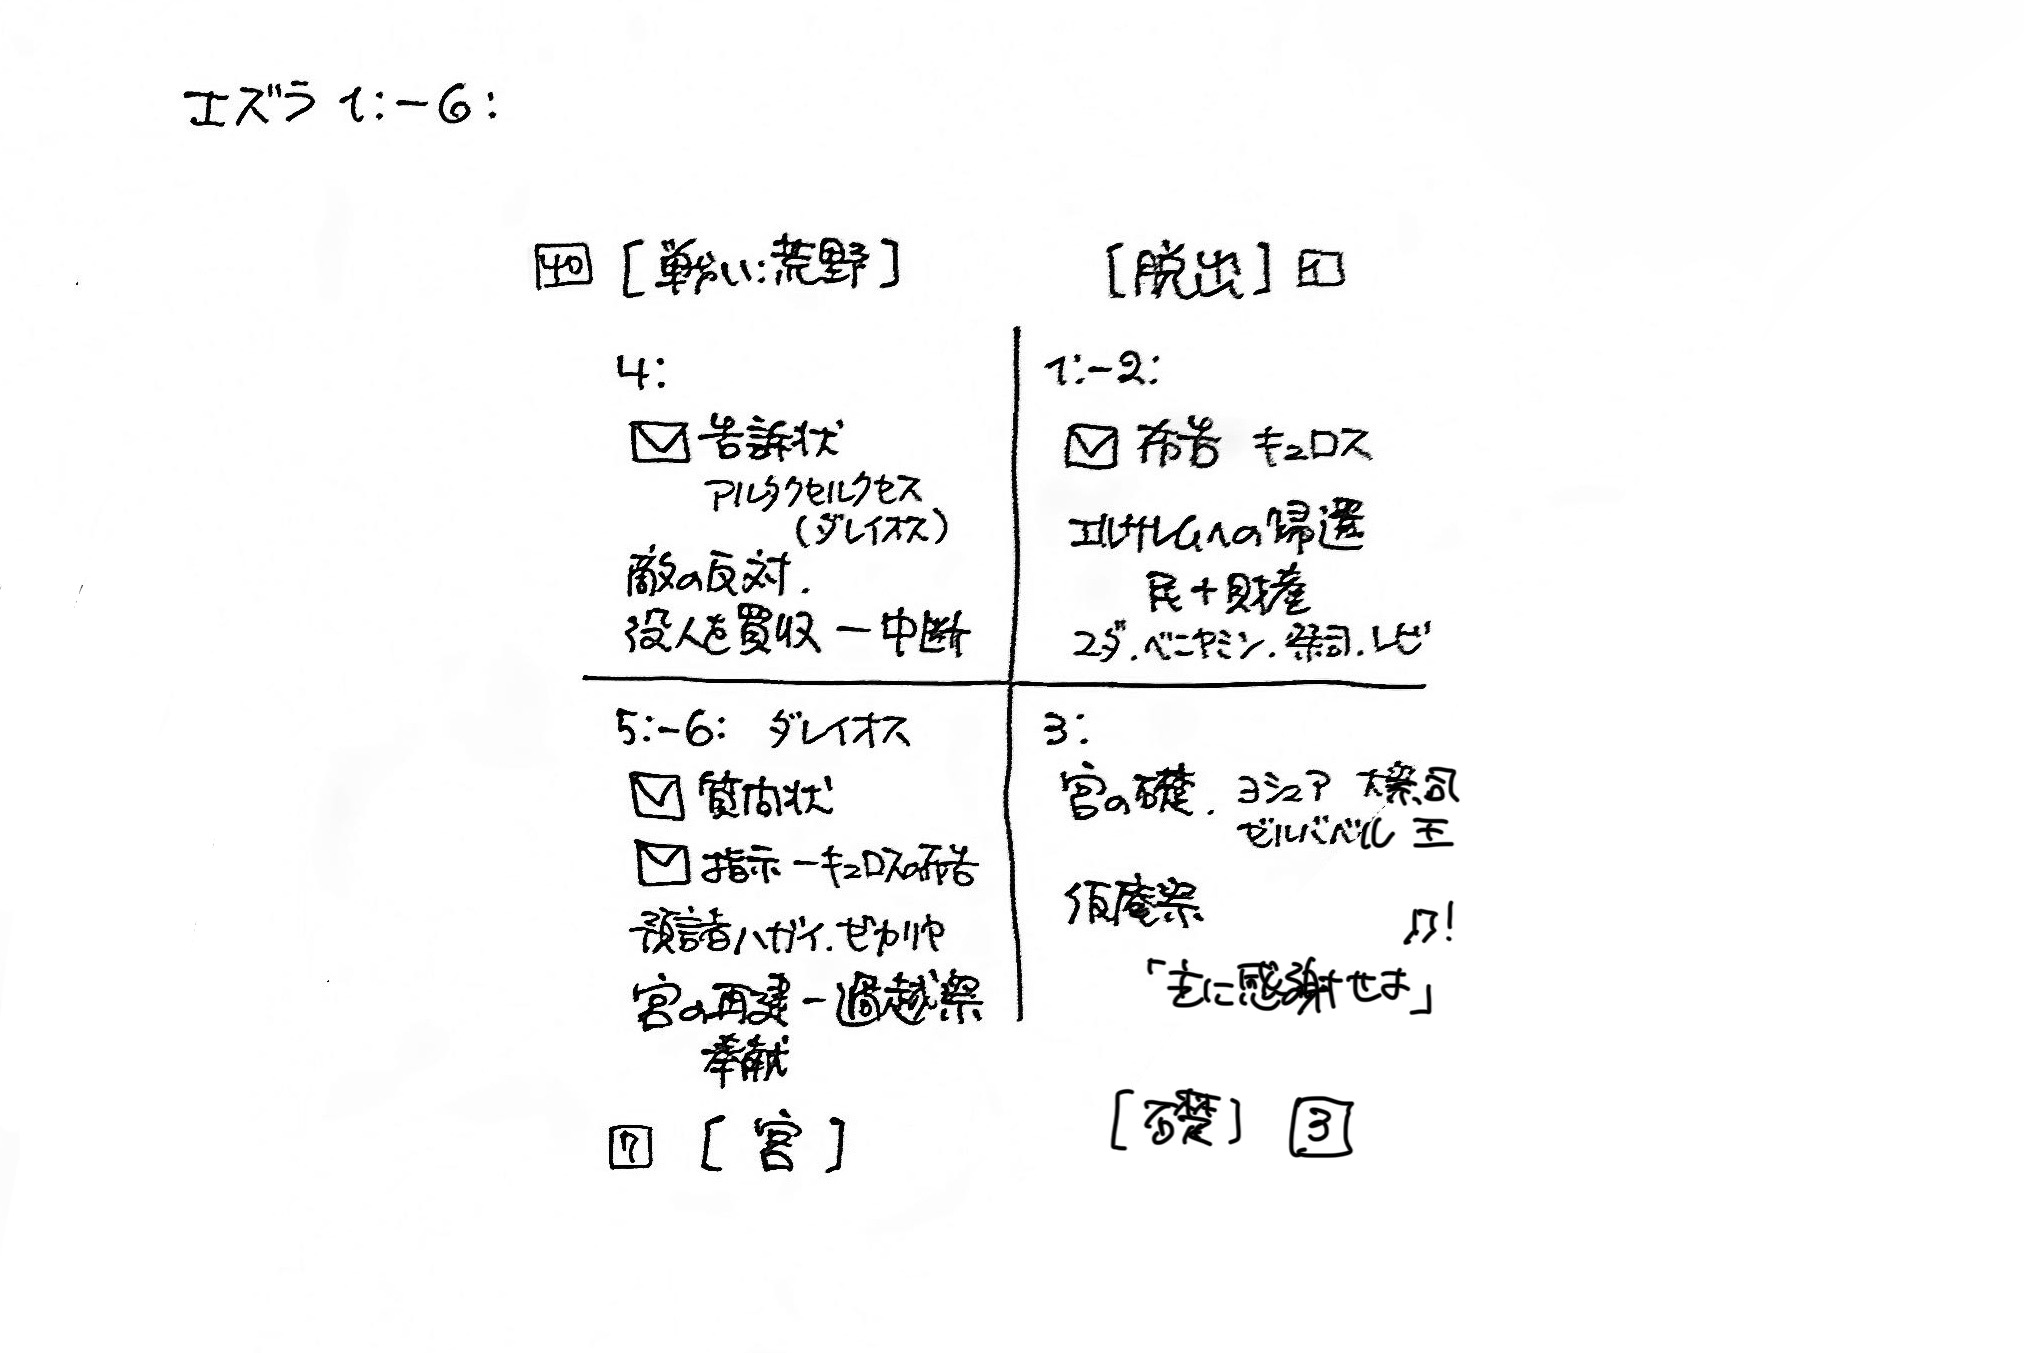 エズラ 1:-6:
40 [戦い:荒野]
[脱出] 1
4:
告訴状
アルタクセルクセス
(ダレイオス)
敵の反対.
役人を買収 ー中断
1:-2:
布告 キュロス
エルサレムへの帰還
民+財産
ユダ.ベニヤミン.祭司.レビ
5:-6: ダレイオス
質問状
指示 ーキュロスの布告
預言者ハガイ.ゼカリヤ
宮の再建 ー過越祭
奉献
7 [宮]
3:
宮の礎. ヨシュア 大祭司
ゼルバベル 王
仮庵祭
♫!
「主に感謝せよ」
[礎] 3